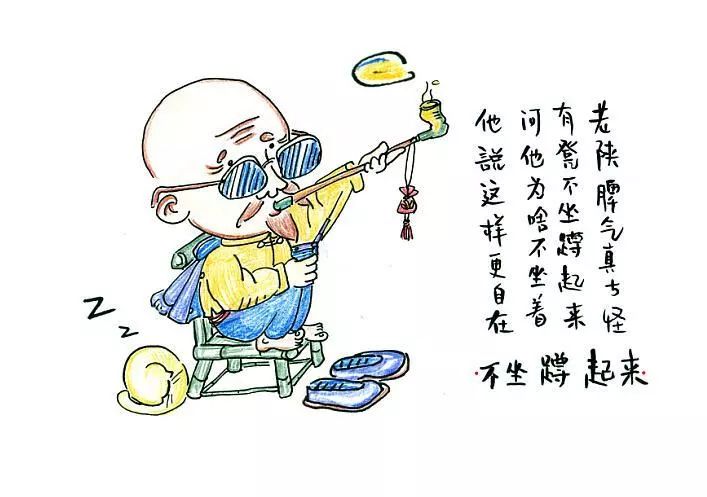 老陕脾气真古怪
有凳不坐蹲起来
问他为啥不坐着
他说这样更自在
不坐蹲起来
Z
Z